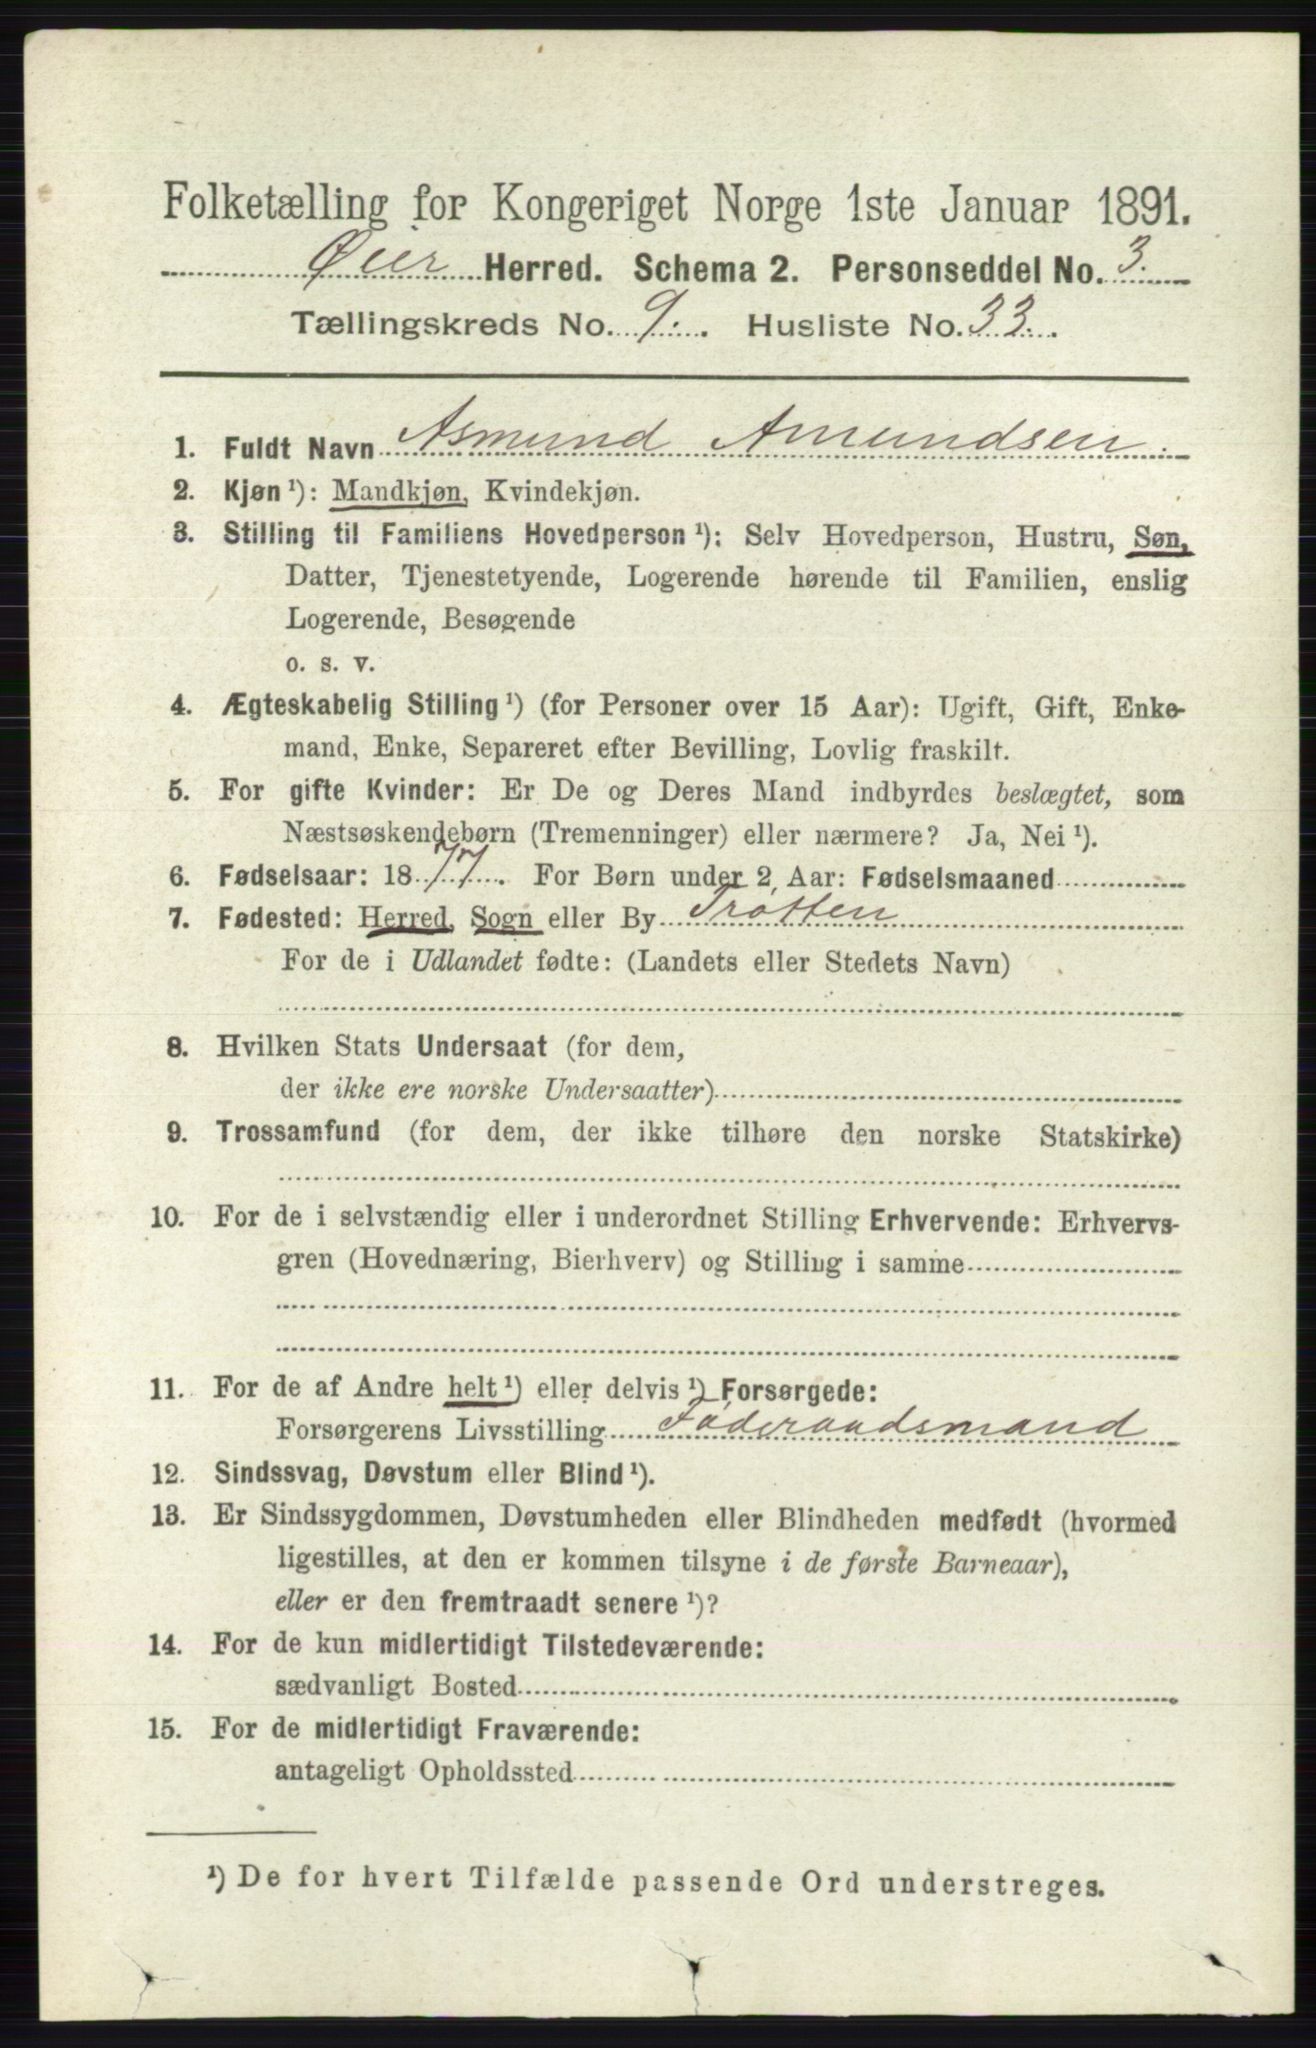 Folketælling for Kongeriget Norge 1ste Januar 1891.
Øier Herred. Schema 2. Personseddel No. 3.
Tællingskreds No. 9. Husliste No. 33.
1. Fuldt Navn Asmund Amundsen.
2. Kjøn ¹): Mandkjøn, Kvindekjøn.
3. Stilling til Familiens Hovedperson ¹): Selv Hovedperson, Hustru, Søn,
Datter, Tjenestetyende, Logerende hørende til Familien, enslig
Logerende, Besøgende
o. s. v.
4. Ægteskabelig Stilling ¹) (for Personer over 15 Aar): Ugift, Gift, Enke-
mand, Enke, Separeret efter Bevilling, Lovlig fraskilt.
5. For gifte Kvinder: Er De og Deres Mand indbyrdes beslægtet, som
Næstsøskendebørn (Tremenninger) eller nærmere? Ja, Nei ¹).
6. Fødselsaar: 1877. For Børn under 2 Aar: Fødselsmaaned
7. Fødested: Herred, Sogn eller By Trotten
For de i Udlandet fødte: (Landets eller Stedets Navn)
8. Hvilken Stats Undersaat (for dem,
der ikke ere norske Undersaatter)
9. Trossamfund (for dem, der ikke tilhøre den norske Statskirke)
10. For de i selvstændig eller i underordnet Stilling Erhvervende: Erhvervs-
gren (Hovednæring, Bierhverv) og Stilling i samme
11. For de af Andre helt ¹) eller delvis ¹) Forsørgede:
Forsørgerens Livsstilling Føderaadsmand
12. Sindssvag, Døvstum eller Blind ¹).
13. Er Sindssygdommen, Døvstumheden eller Blindheden medfødt (hvormed
ligestilles, at den er kommen tilsyne i de første Barneaar),
eller er den fremtraadt senere ¹)?
14. For de kun midlertidigt Tilstedeværende:
sædvanligt Bosted
15. For de midlertidigt Fraværende:
antageligt Opholdssted
¹) De for hvert Tilfælde passende Ord understreges.